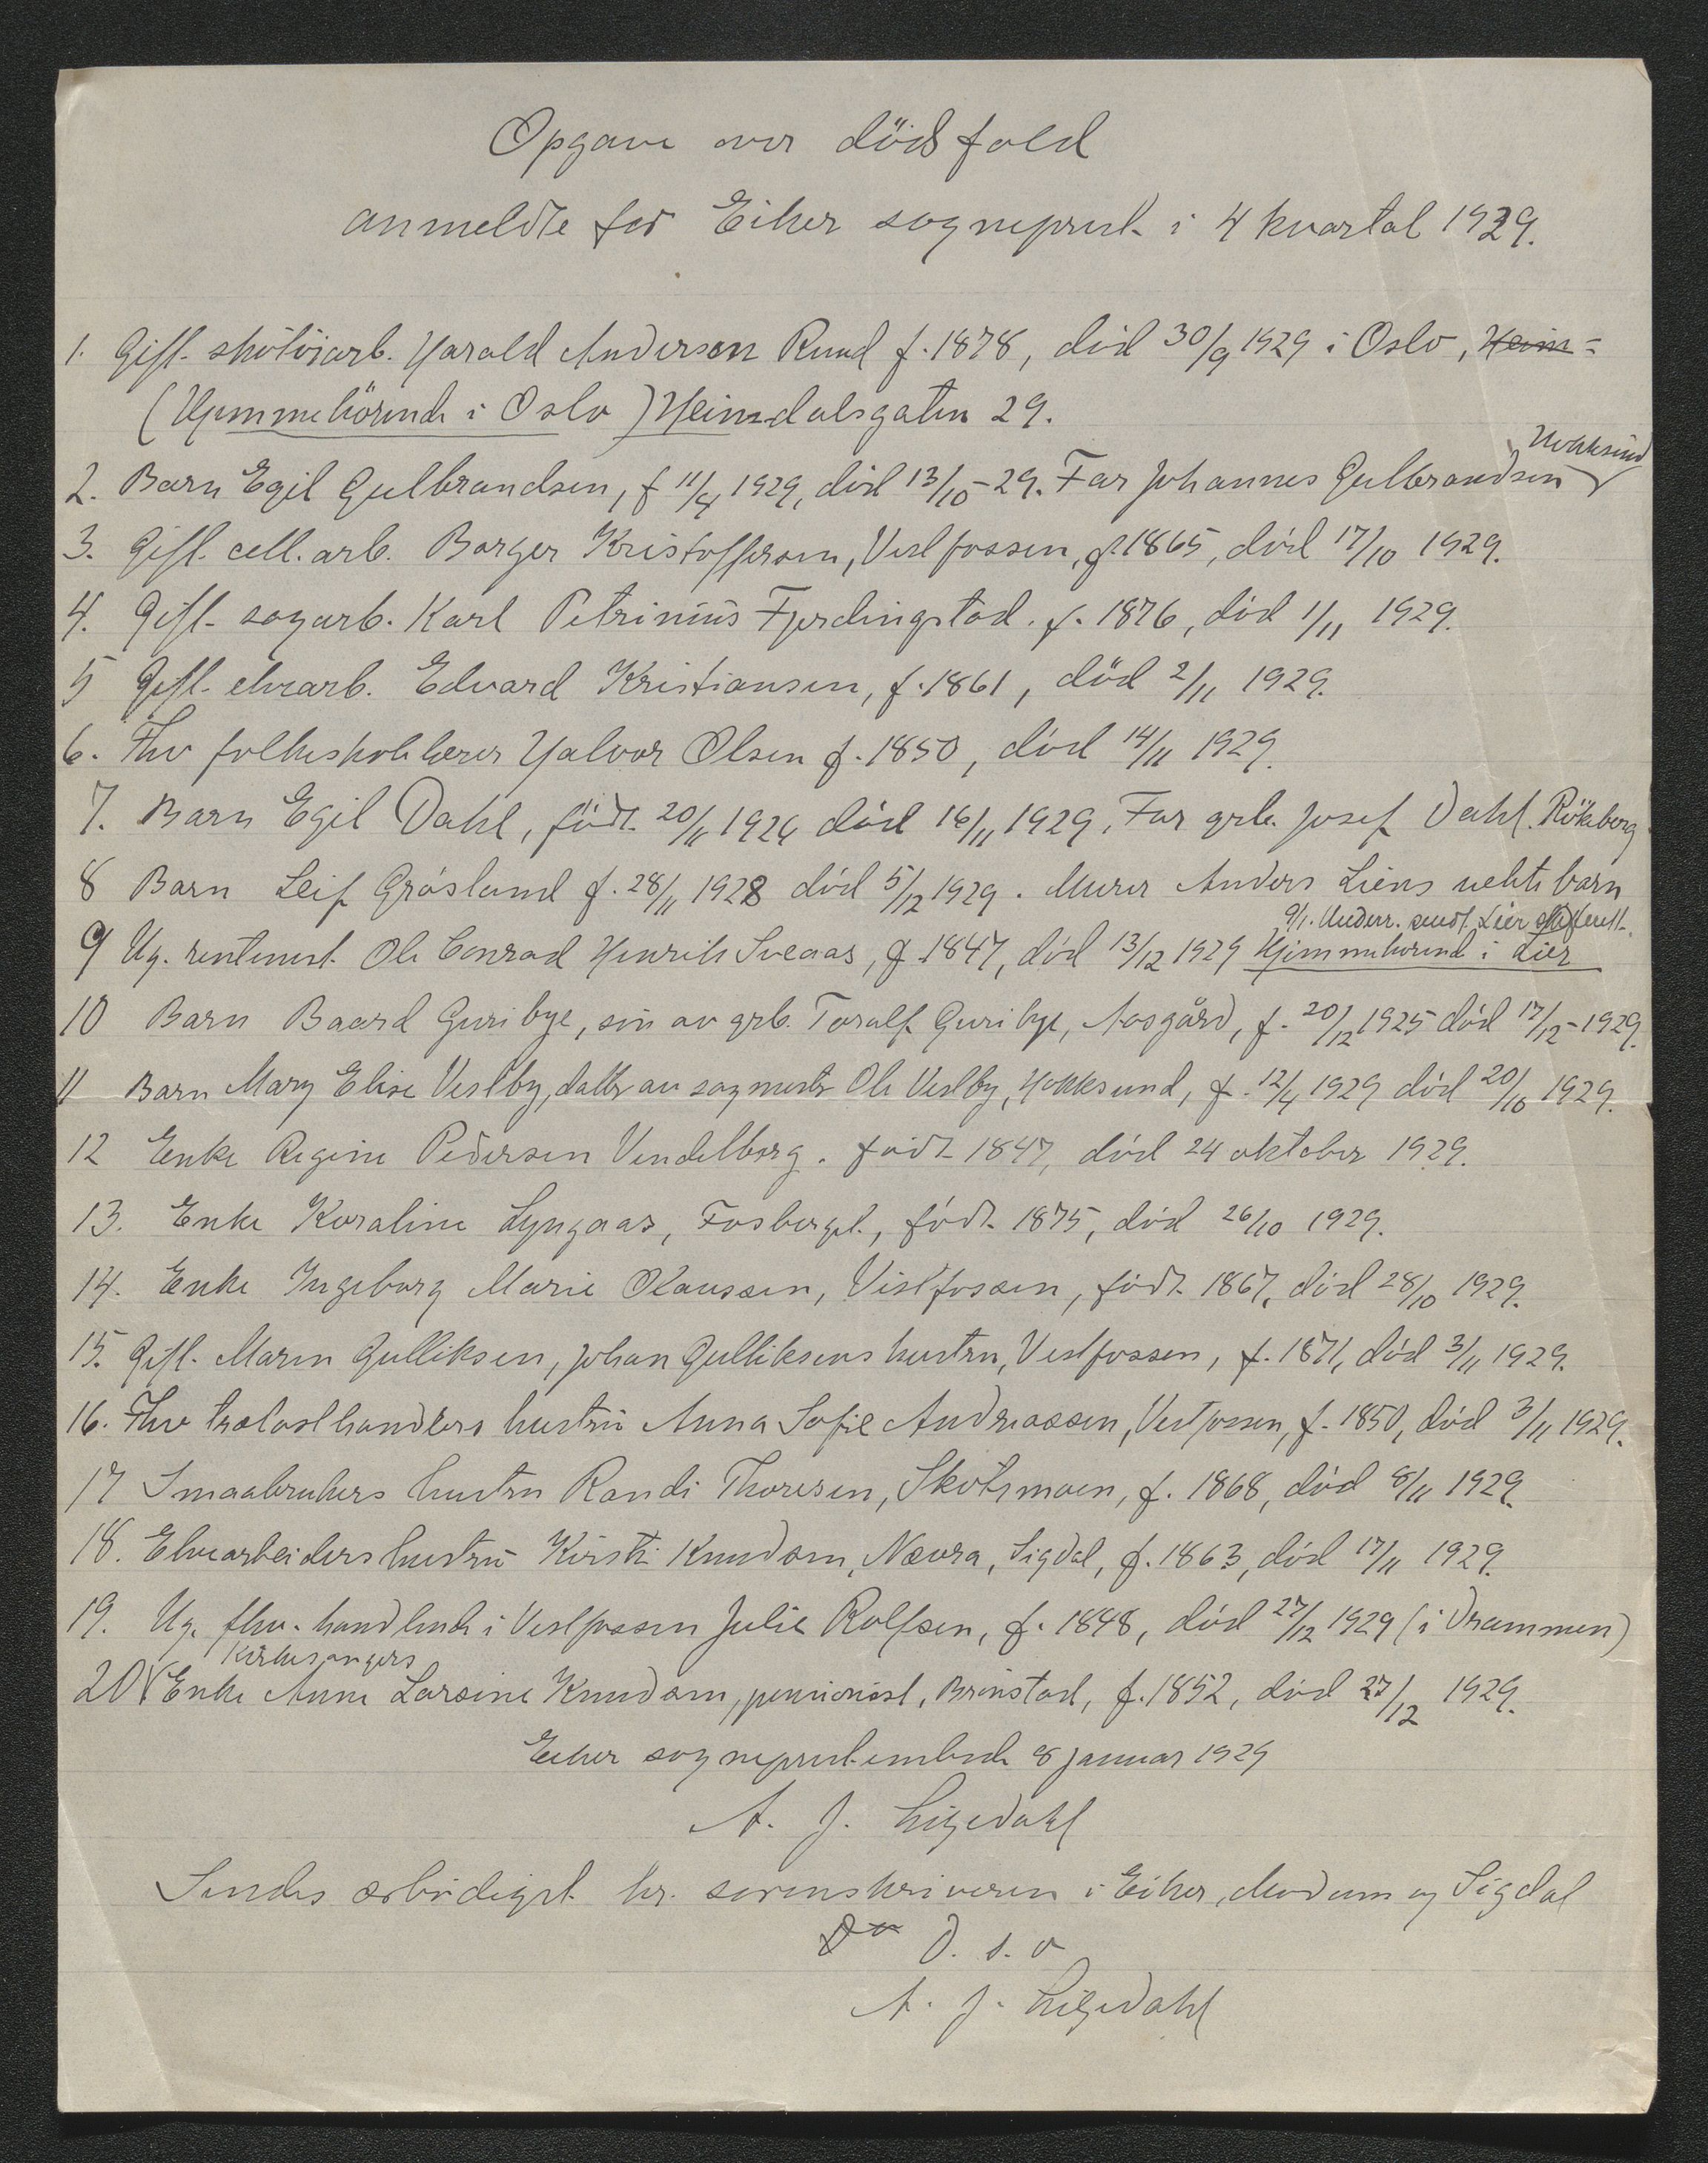 Opgave over dödsfald
anmeldte for Eiker sogneprest i 4 kvartal 1929.
1. Gift. skotöiarb. Harald Andersen Ruud f. 1878, död 30/9 1929 i Oslo, Heim=
(Hjemmehörende i Oslo) Heimdalsgaten 29.
Hokksund
2. Barn Egil Gulbrandsen, f 11/4 1929, död 13/10-29. Far Johannes Gulbrandsen
3. Gift. cell. arb. Borger Kristoffersen, Vestfossen, f. 1865, död 17/10 1929.
4. Gift. sagarb. Karl Petrinius Fjerdingstad. f. 1876, död 1/11 1929.
5 Gift. elvearb. Edvard Kristiansen, f. 1861, död 2/11 1929.
6. Fhv folkeskolelærer Halvor Olsen f. 1850, död 14/11 1929.
7. Barn Egil Dahl, födt. 20/11 1926 död 16/11 1929. Far grb. Josef Dahl. Rökeberg
8 Barn Leif Gråsland f. 28/11 1928 död 5/12 1929. Murer Anders Liens uekte barn
9/1. Underr. sendt Lier
9 Ug. rentenist. Ole Conrad Henrik Sveaas, f. 1847, död 13/12 1929 Hjemmehörend i Lier
10 Barn Baard Guribye, sön av grb. Toralf Guribye, Aasgård, f. 20/12 1925 död 17/12-1929.
11 Barn Mary Elise Vestby, datter av sagmester Ole Vestby, Hokksund, f. 12/4 1929 död 20/10 1929.
12 Enke Regine Pedersen Vendelborg. födt 1847, död 24 oktober 1929.
13. Enke Karoline Lyngaas, Fosbergst., födt. 1875, död 26/10 1929.
14. Enke Ingeborg Marie Klaussen, Vestfossen, födt. 1867, död 28/10 1929.
15. Gift. Maren Gulliksen, Johan Gulliksens hustru, Vestfossen, f. 1871, död 3/11 1929.
16. Fhv trælasthandlers hustru Anna Sofie Andreassen, Vestfossen, f. 1850, död 3/11 1929.
17 Smaabrukers hustru Randi Thoresen, Skotsmoen, f. 1868, död 8/11 1929.
18. Elvearbeiders hustru Kirsti Knudsen, Nævra, Sigdal, f. 1863, död 17/11 1929.
19. Ug. fhv. handlende i Vestfossen Julie Rolfsen, f. 1848, död 27/12 1929 (i Drammen)
Kirkesangers
20 Enke Anne Larsine Knudsen, pensionist, Brinstad, f. 1852, död 27/12 1929.
Eiker sogneprestembede 8 januar 1929
A. J. Ligedahl
Sendes ærbödigst hr. sorenskriveren i Eiker, Modum og Sigdal
D. s. o
A. J. Ligedahl